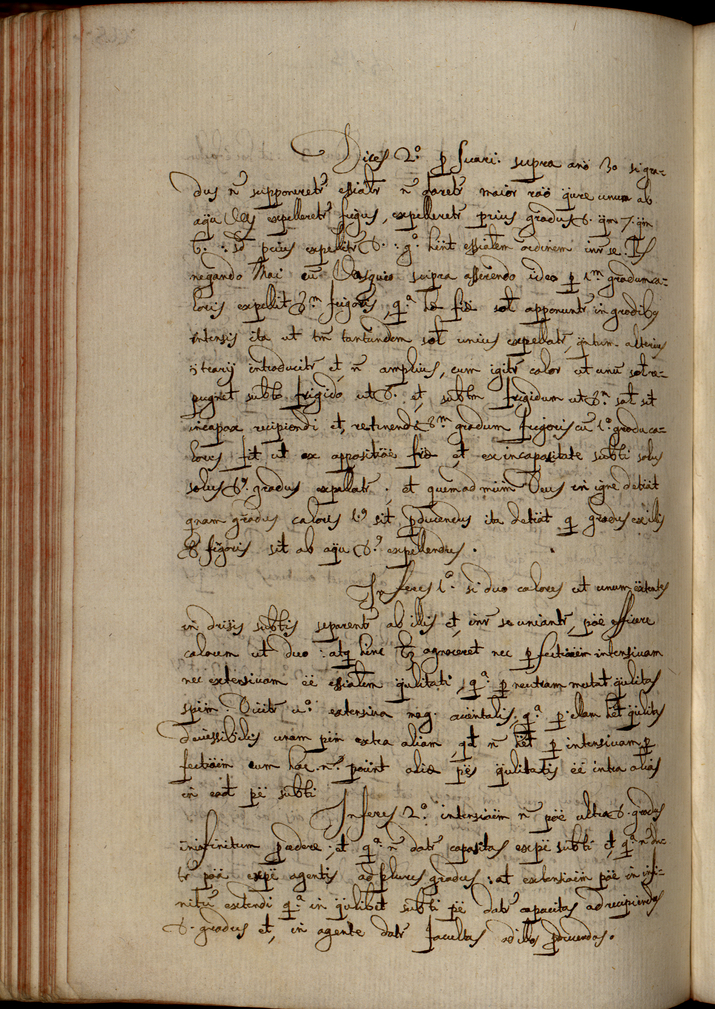 Dices 2.º p Suari. supra ano 30 si gra-
dus n̄ supponeretr̄ essialr̄ n̄ daretr̄ maior rao qure unum ab
aqu expelleretr̄ frigus, expelleretr̄ prius gradus 8. qm 7. qm
6. : sd prius expellitr̄ 8. : gº. hent essialem ordinem inr̄ se. Rs
negando Mai cū Vasquio supra asserendo ideo p 1.m gradum ca-
loris expellit 8.m frigoris, q.a hæ fiæ sot apponuntr̄ in gradibus
intensis ita ut tm̄ tantundem sot unius expellatr̄, qntum alterius
introducitr̄ et n̄ amplius, cum igitr̄ calor ut unū sot re-
pugnet subto frigido ut 8. et, subtm frigidum ut 8.m sot sit
incapax recipiendi et, retinendi 8.m gradum frigoris cū 1.º gradu ca-
loris fit ut ex appositiōe fiæ et ex incapacitate subti solus
solus 8.s gradus expellatr̄ . et quemadmūm Deus in igne detiāt
qnam gradus caloris 1.s sit pducendus ita detiāt q gradus ex illis
8. frigoris sit ab aqu 8.s expellendus .
Inferes 1.º si duo calores ut unum exātes
in drisis subtis separentr̄ ab illis et, inr̄ se uniantr̄, pōe efficere
calorem ut duo : atq hinc agnosceret nec pfectiōem intensivam
nec extensivam ēe essialem qulitati, q.a p neutram mutat qulitas
spēm. Dicitr̄ u.º extensiva neg. accentalis, q.a p illam het qulitas
divissibilis unam pēm extra aliam, qd n̄ het p intensivam p
fectiōem cum hac n.e poūnt aliæ pēs qulitatis ēe intra alias
in eād pē subti
Inferes 2.º intensiōem n̄ pōe ultra 8. gradus
in infinitum pcedere, et q.a n̄ datr̄ capacitas ex pē subti et, q.a n̄ da-
tr̄ poā ex pē agentis ad plures gradus : at extensiōem pōe in infi-
nitū extendi q.a in qulibet subti pē datr̄ capacitas ad recipiendos
8. gradus et, in agente datr̄ facultas ad illos pducendos.